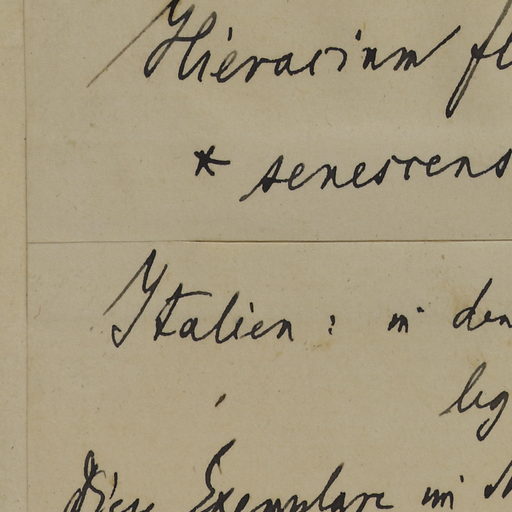 Hieracium fl
* senescens
Italien : in den
leg
Diese Exemplare im